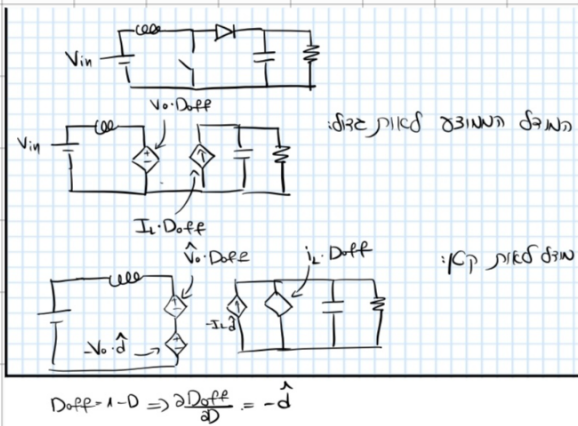 Vin
Vo·Doff
המודל הממוצע לאות גדול:
Vin
IL·Doff
V̂o·Doff
iL·Doff
מודל לאות קטן:
-IL d̂
-Vo·d̂
Doff=1-D ⇒ ∂Doff/∂D = -d̂